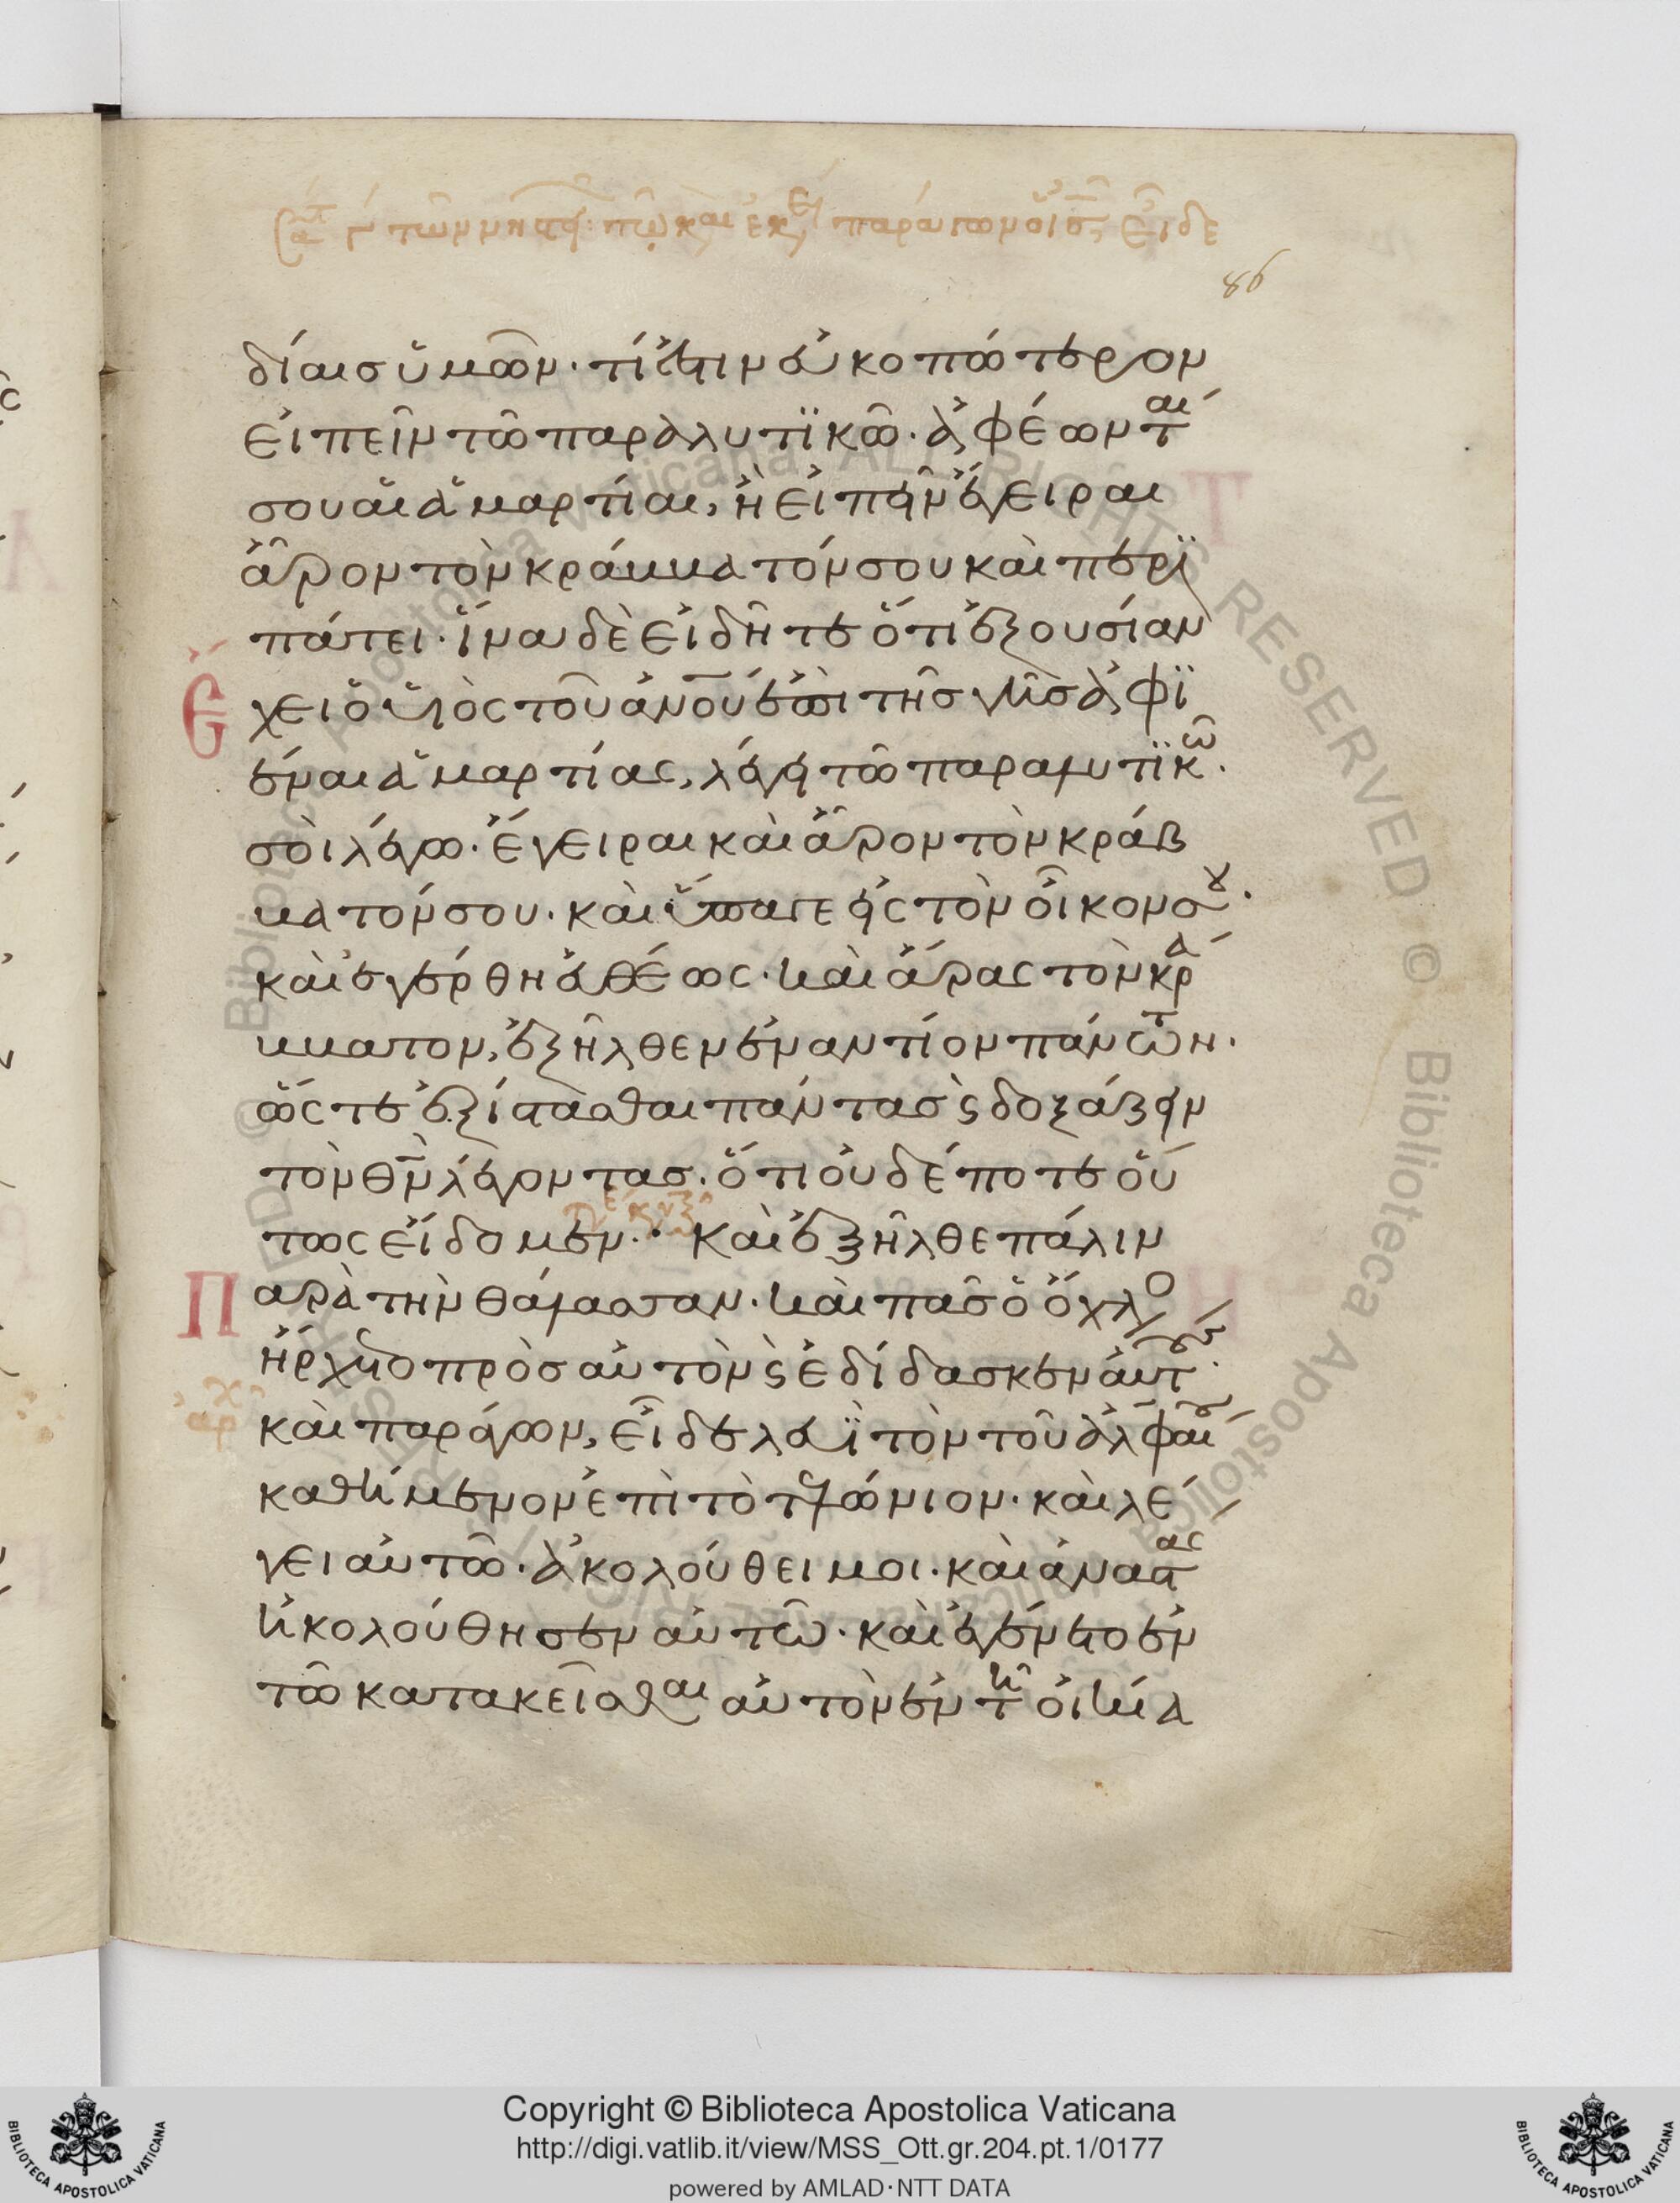 86
δίαις ὑμῶν· τί ἐστιν εὐκοπώτερον
εἰπεῖν τῶ παραλυτϊκῶ· ἀφέωνται
σου αἱ ἁμαρτίαι, ἢ εἰπεῖν ἔγειραι
ἆρον τὸν κράμματόν σου καὶ περϊ
πάτει· ἵνα δὲ εἰδῆτε ὅτι ἐξουσίαν
Ἔχει ὁ υἱὸς τοῦ ἀνοῦ ἐπὶ τῆς γῆς ἀφϊ
έναι ἁμαρτίας, λέγει τῶ παραλυτϊκῶ.
σοὶ λέγω· ἔγειραι καὶ ἆρον τὸν κράβ
ματόν σου· καὶ ὕπαγε εἰς τὸν οἶκον σου·
καὶ ἐγέρθη εὐθέως· καὶ ἄρας τὸν κρά
μματον, ἐξῆλθεν ἐναντίον πάντων·
ὥστε ἐξίστασθαι πάντας ϛ δοξάζειν
τὸν θν λέγοντας· ὅτι οὐδέποτε οὕ
τως εἴδομεν· Καὶ ἐξῆλθε πάλιν
Παρὰ τὴν θάλασσαν· καὶ πᾶς ὁ ὄχλο
ἤρχετο πρὸς αὐτὸν ϛ ἐδίδασκεν αὐτούς·
καὶ παράγων, εἶδε λευϊ τὸν τοῦ ἀλφαίου
καθήμενον ἐπὶ τὸ τελώνιον· καὶ λέ
γει αὐτῶ· ἀκολούθει μοι· καὶ ἀναστας
ἠκολούθησεν αὐτῶ· καὶ ἐγένετο ἐν
τῶ κατακεῖσθαι αὐτὸν ἐν τῆ οἰκία
Copyright © Biblioteca Apostolica Vaticana
http://digi.vatlib.it/view/MSS_Ott.gr.204.pt.1/0177
powered by AMLAD·NTT DATA